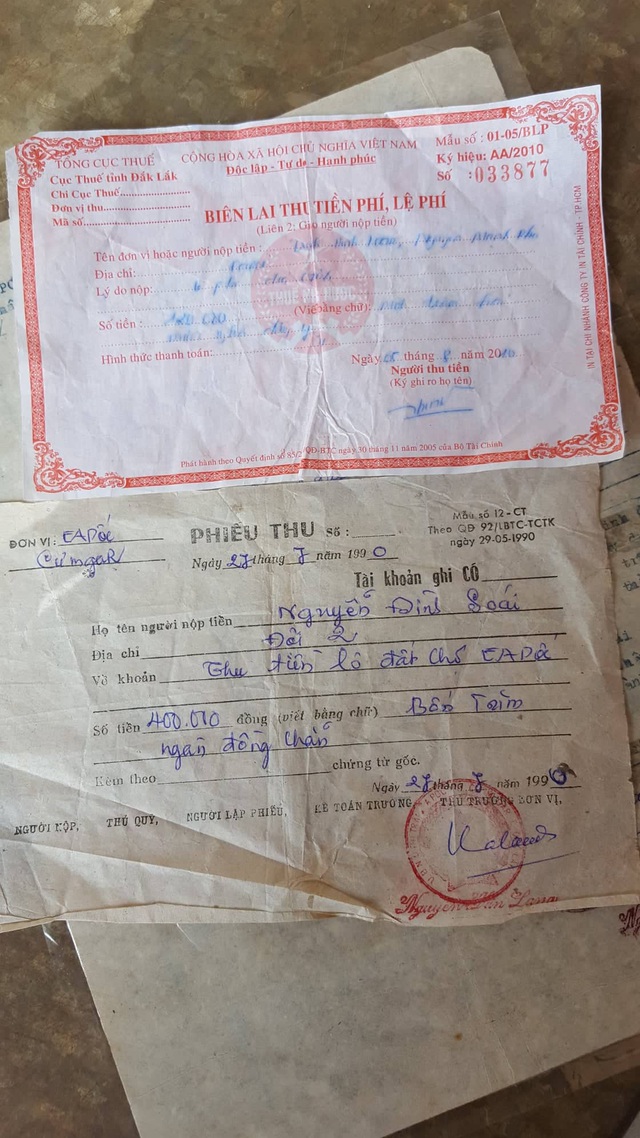 TỔNG CỤC THUẾ
Cục Thuế tỉnh Đắk Lắk
Chi Cục Thuế
Đơn vị thu
Mã số
CỘNG HÒA XÃ HỘI CHỦ NGHĨA VIỆT NAM
Độc lập - Tự do - Hạnh phúc
Mẫu số : 01-05/BLP
Ký hiệu: AA/2010
Số : 033877
BIÊN LAI THU TIỀN PHÍ, LỆ PHÍ
(Liên 2: Giao người nộp tiền)
Tên đơn vị hoặc người nộp tiền :
Địa chỉ:
Lý do nộp:
THUẾ NHÀ NƯỚC
(Viết bằng chữ):
Số tiền :
Hình thức thanh toán:
Ngày 05 tháng 8 năm 2010
Người thu tiền
(Ký ghi rõ họ tên)
Phát hành theo Quyết định số 85/ /QĐ-BTC ngày 30 tháng 11 năm 2005 của Bộ Tài Chính
IN TẠI CHI NHÁNH CÔNG TY IN TÀI CHÍNH - TP.HCM
ĐƠN VỊ : EAPốc
CưmgaR
PHIẾU THU Số :
Ngày 27 tháng 7 năm 1990
Mẫu số 12-CT
Theo QĐ 92/LBTC-TCTK
ngày 29-05-1990
Tài khoản ghi CÓ
Họ tên người nộp tiền Nguyễn Đình Soái
Địa chỉ Đội 2
Về khoản Thu tiền lô đất chợ EAPốc
Số tiền 400.000 đồng (viết bằng chữ) Bốn Trăm
ngàn đồng chẵn
Kèm theo chứng từ gốc.
Ngày 27 tháng 7 năm 1990
NGƯỜI NỘP, THỦ QUỸ, NGƯỜI LẬP PHIẾU, KẾ TOÁN TRƯỞNG THỦ TRƯỞNG ĐƠN VỊ,
Nguyễn Văn Lang